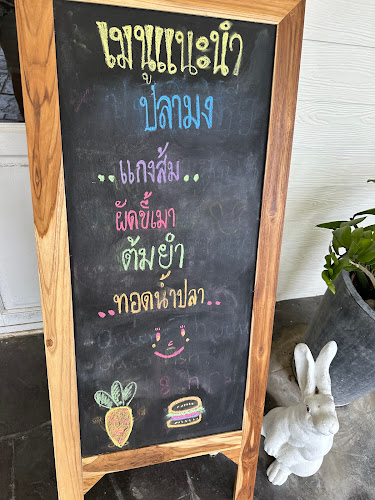 เมนูแนะนำ
ปลามง
..แกงส้ม..
ผัดขี้เมา
ต้มยำ
..ทอดน้ำปลา..